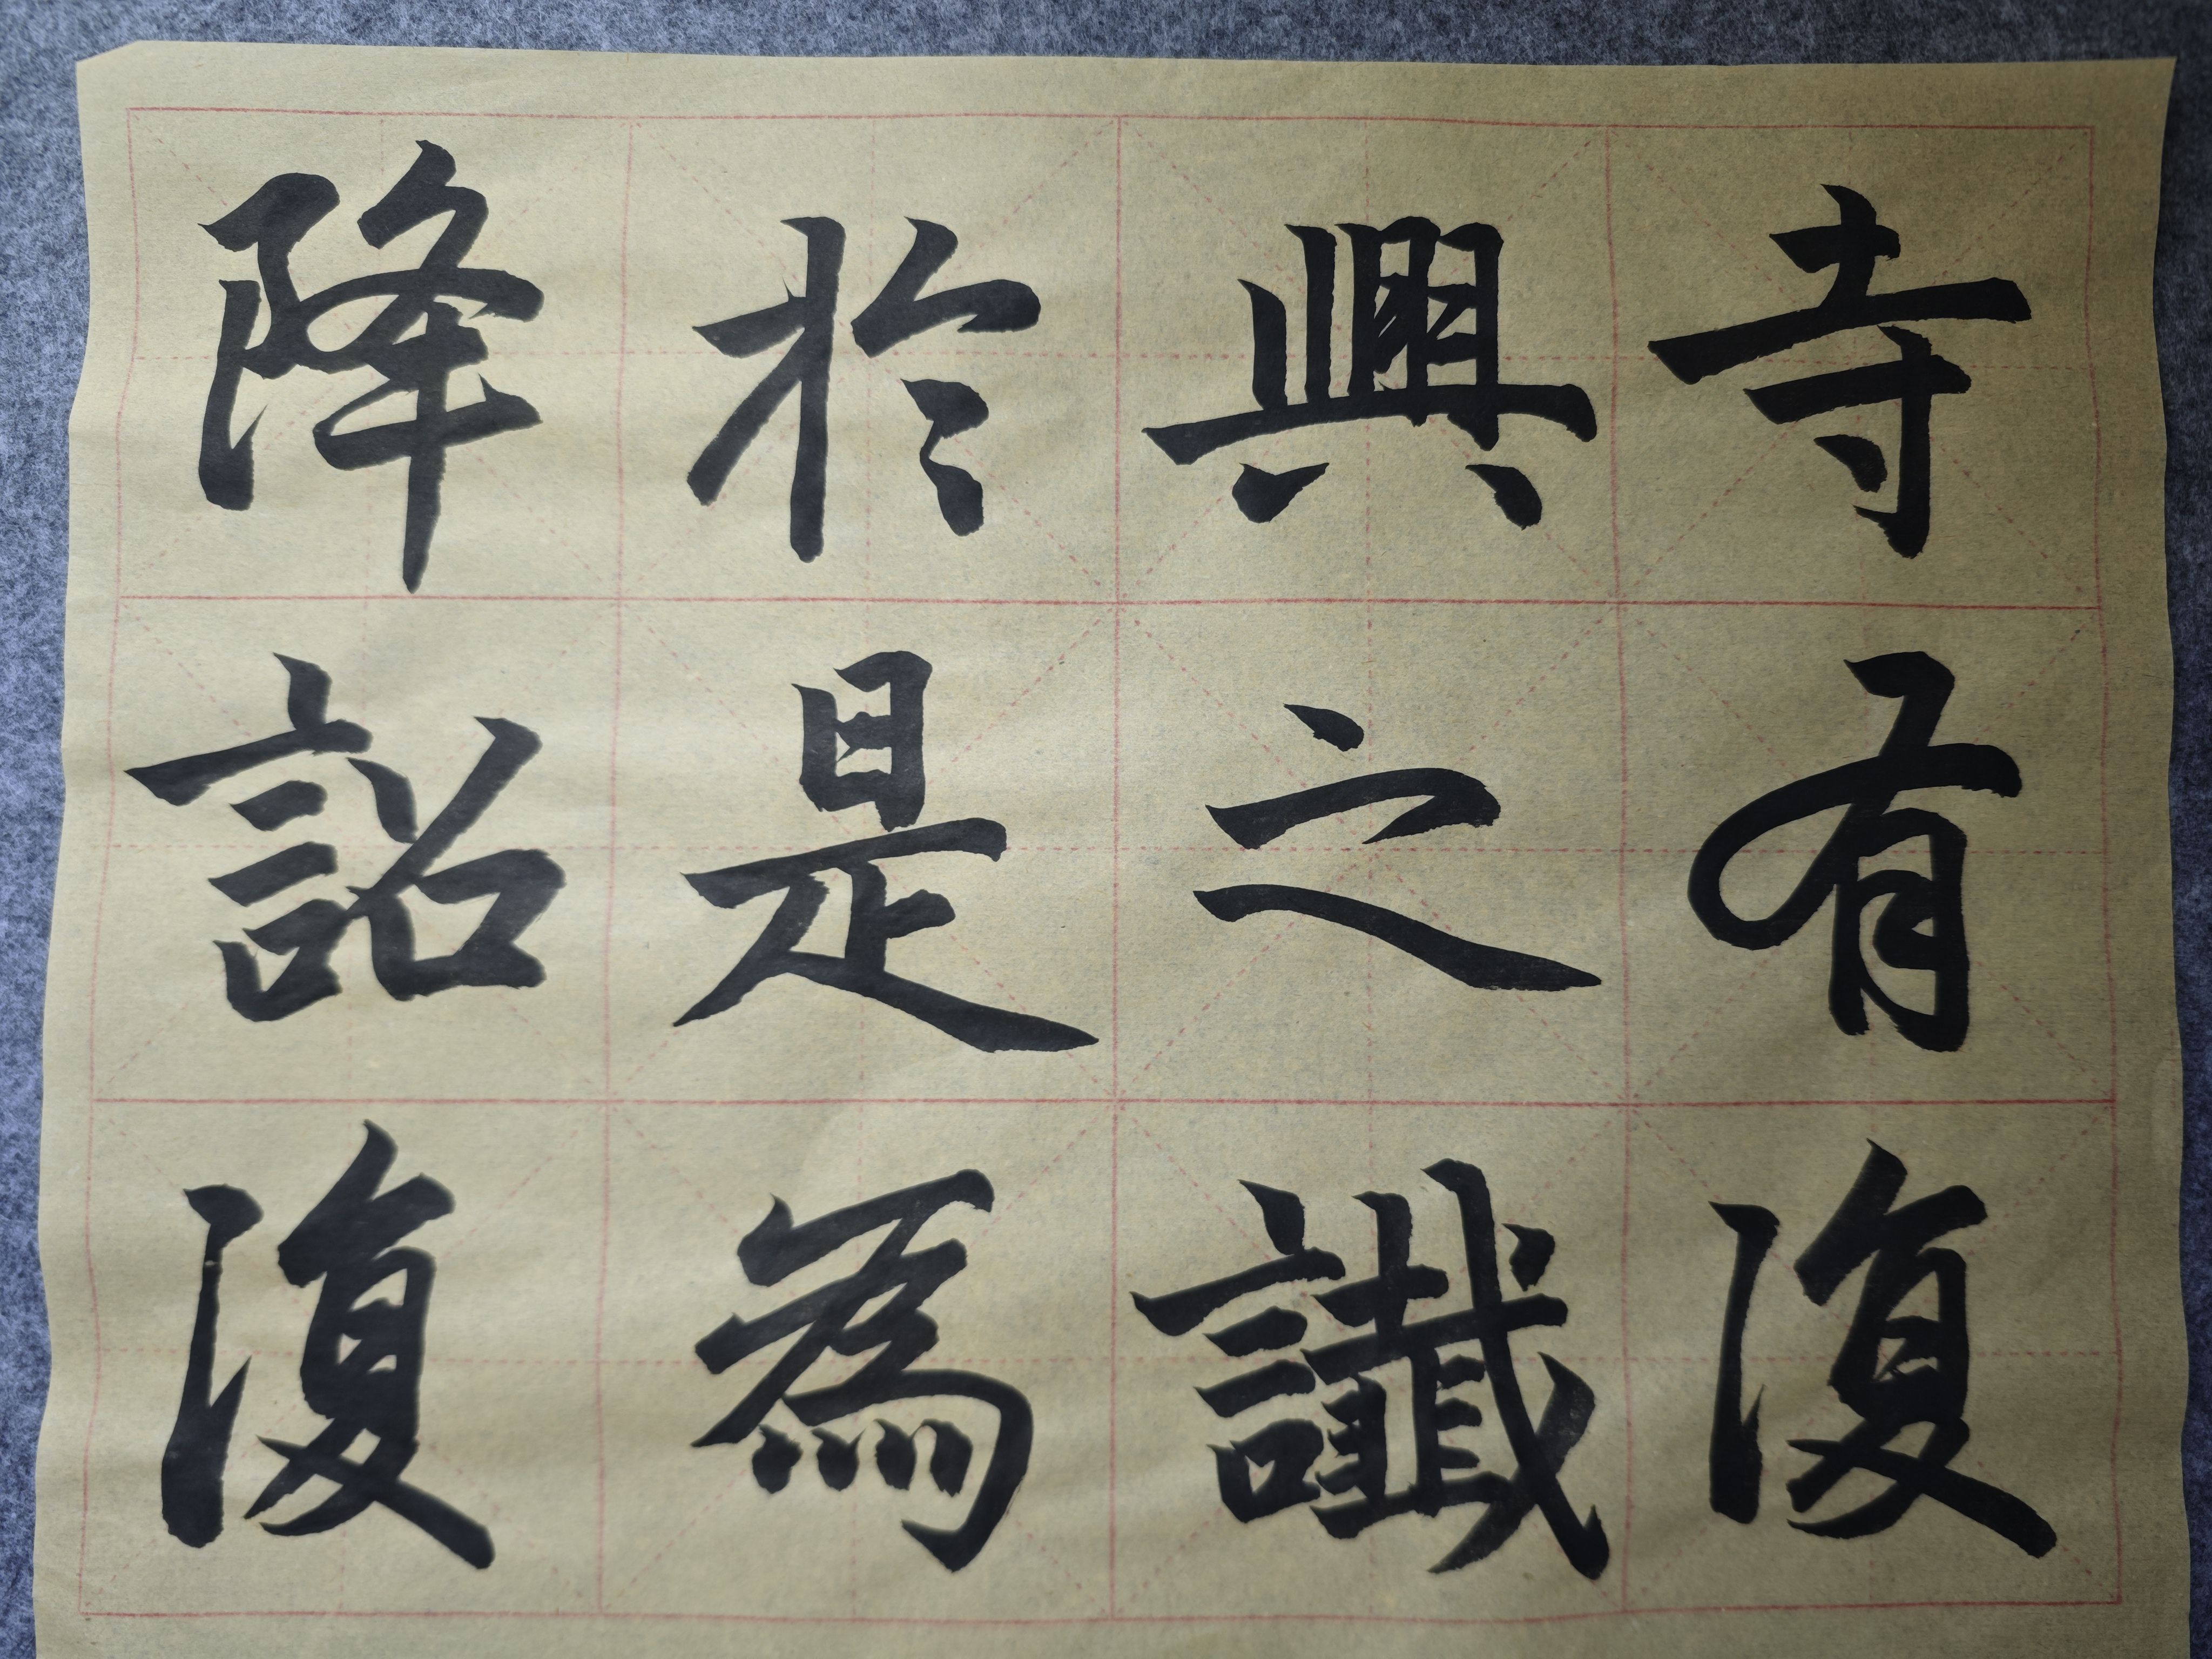 寺有復
興之讖
於是為
降詔復